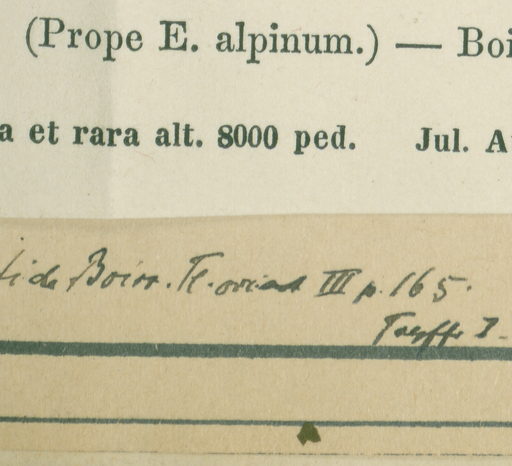 (Prope E. alpinum.) — Boi
a et rara alt. 8000 ped. Jul. A
fide Boiss. Fl. orient III p. 165.